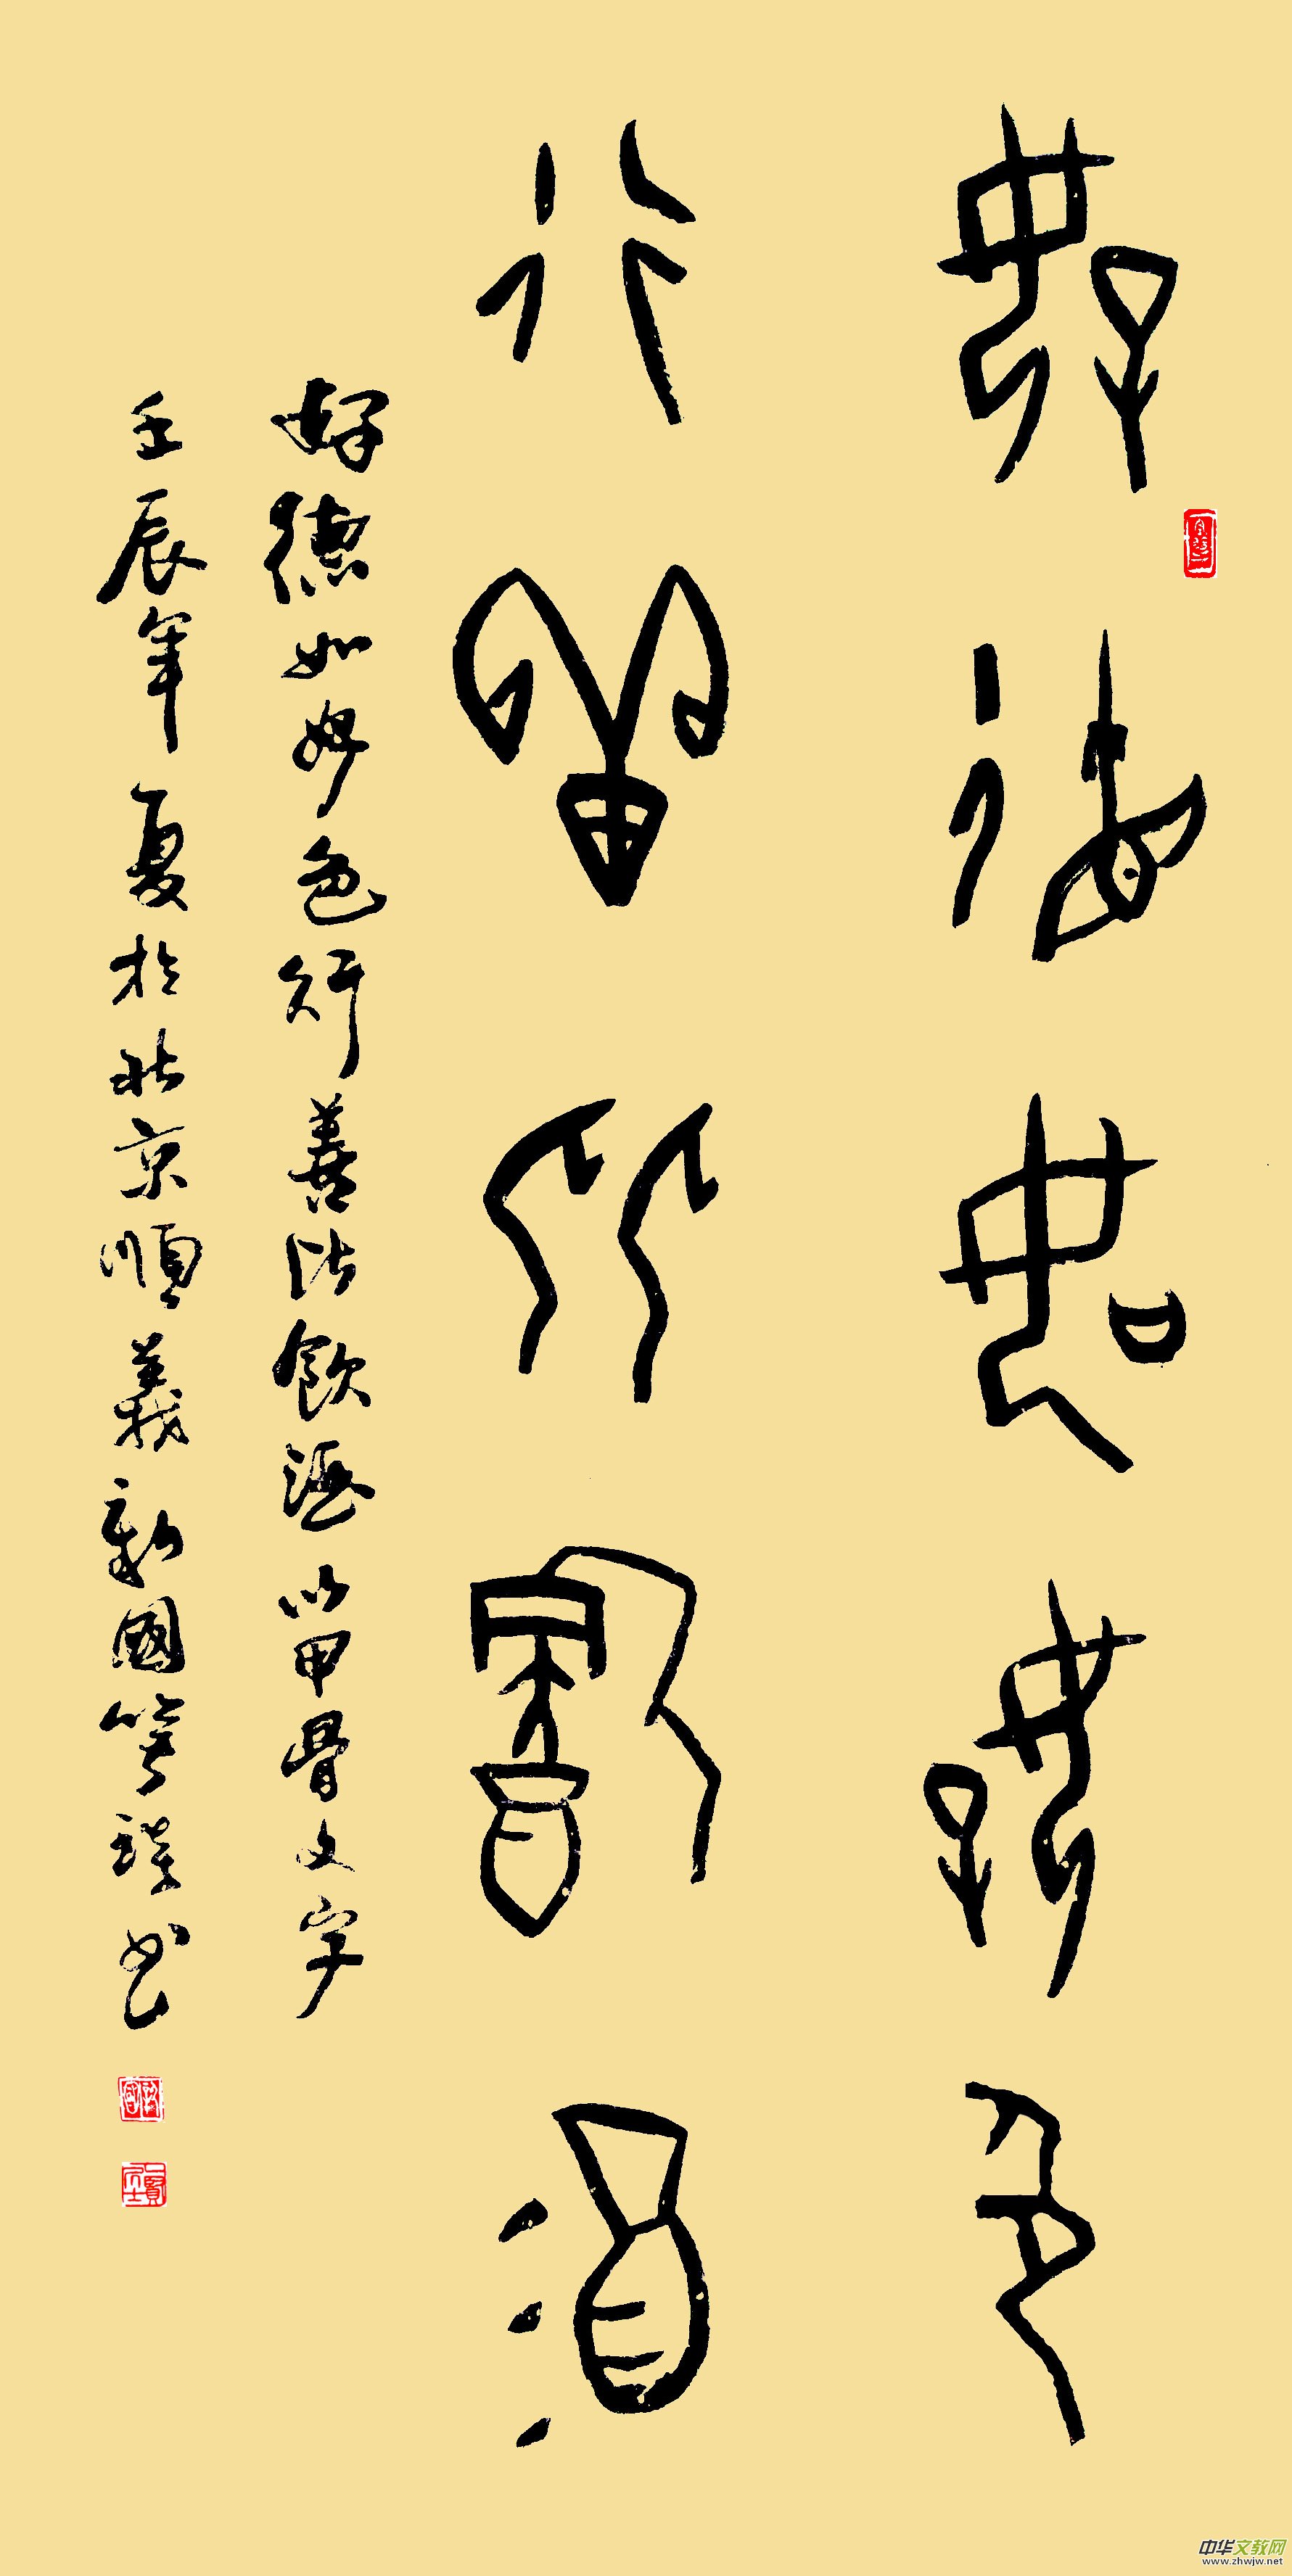 好德如好色
行善比飲酒
好德如好色行善比飲酒以甲骨文字
壬辰年夏於北京順義新國箏瑛书
中华文教网
www.zhwjw.net